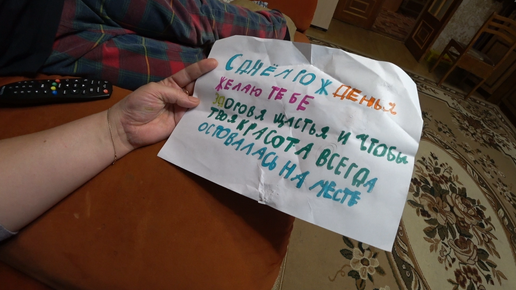 С ДНЁЛ ГОЖ ДЕНЬЯ
ЖЕЛАЮ ТЕБЕ
ЗДОРОВЯ ЩАСТЬЯ И ЧТОБЫ
ТВОЯ КРАСОТА ВСЕГДА
ОСТОВАЛАСЬ НА МЕСТЕ